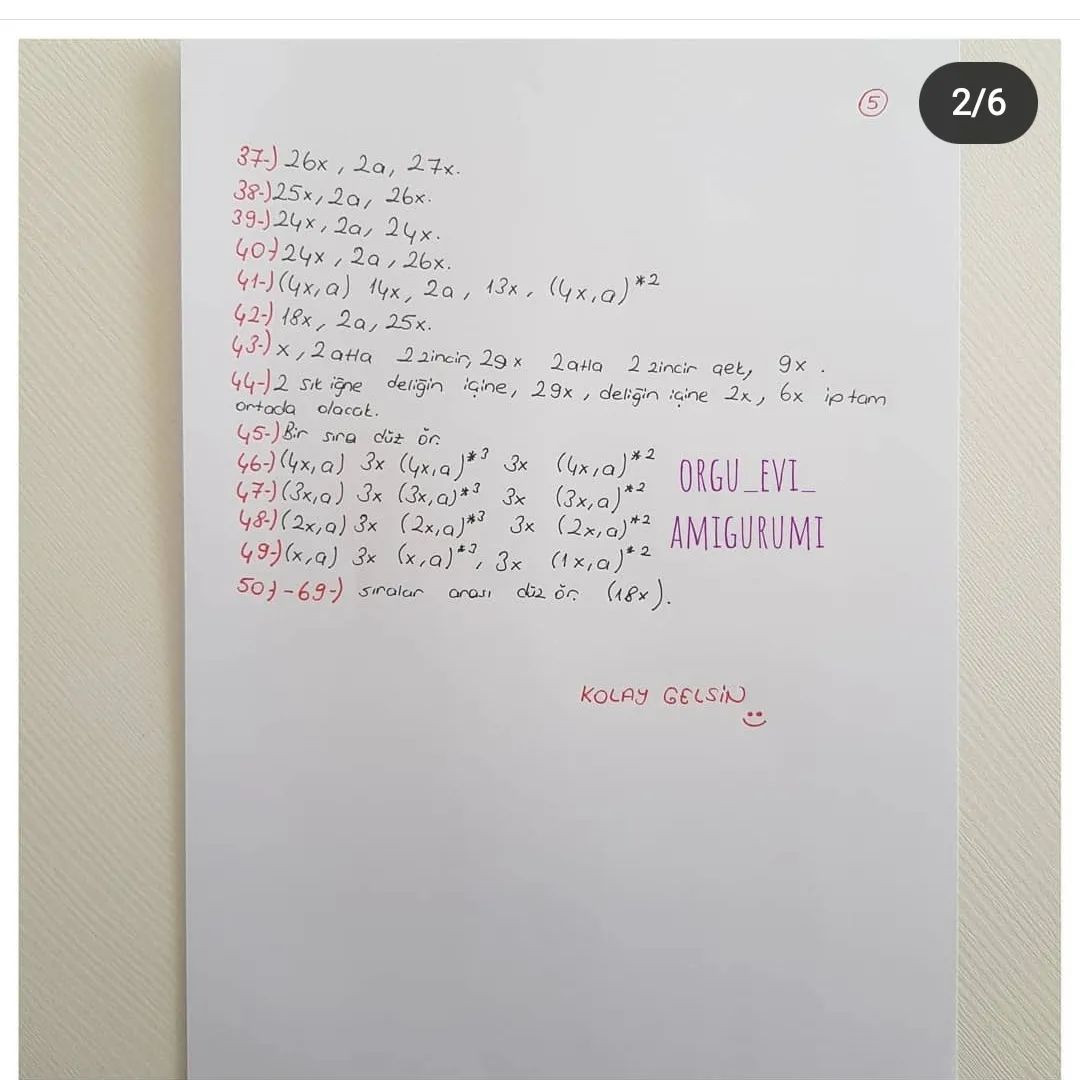 2/6
5
37-) 26x, 2a, 27x.
38-) 25x, 2a, 26x.
39-) 24x, 2a, 24x.
40-) 24x, 2a, 26x.
41-) (4x,a) 14x, 2a, 13x, (4x,a)*2
42-) 18x, 2a, 25x.
43-) x, 2 atla 2 zincir, 29x 2 atla 2 zincir çek, 9x.
44-) 2 sık iğne deliğin içine, 29x, deliğin içine 2x, 6x ip tam
ortada olacak.
45-) Bir sıra düz ör.
46-) (4x,a) 3x (4x,a)*3 3x (4x,a)*2
47-) (3x,a) 3x (3x,a)*3 3x (3x,a)*2
48-) (2x,a) 3x (2x,a)*3 3x (2x,a)*2
49-) (x,a) 3x (x,a)*3, 3x (1x,a)*2
50-) -69-) sıralar arası düz ör. (18x).
ORGU_EVI_
AMIGURUMI
KOLAY GELSİN